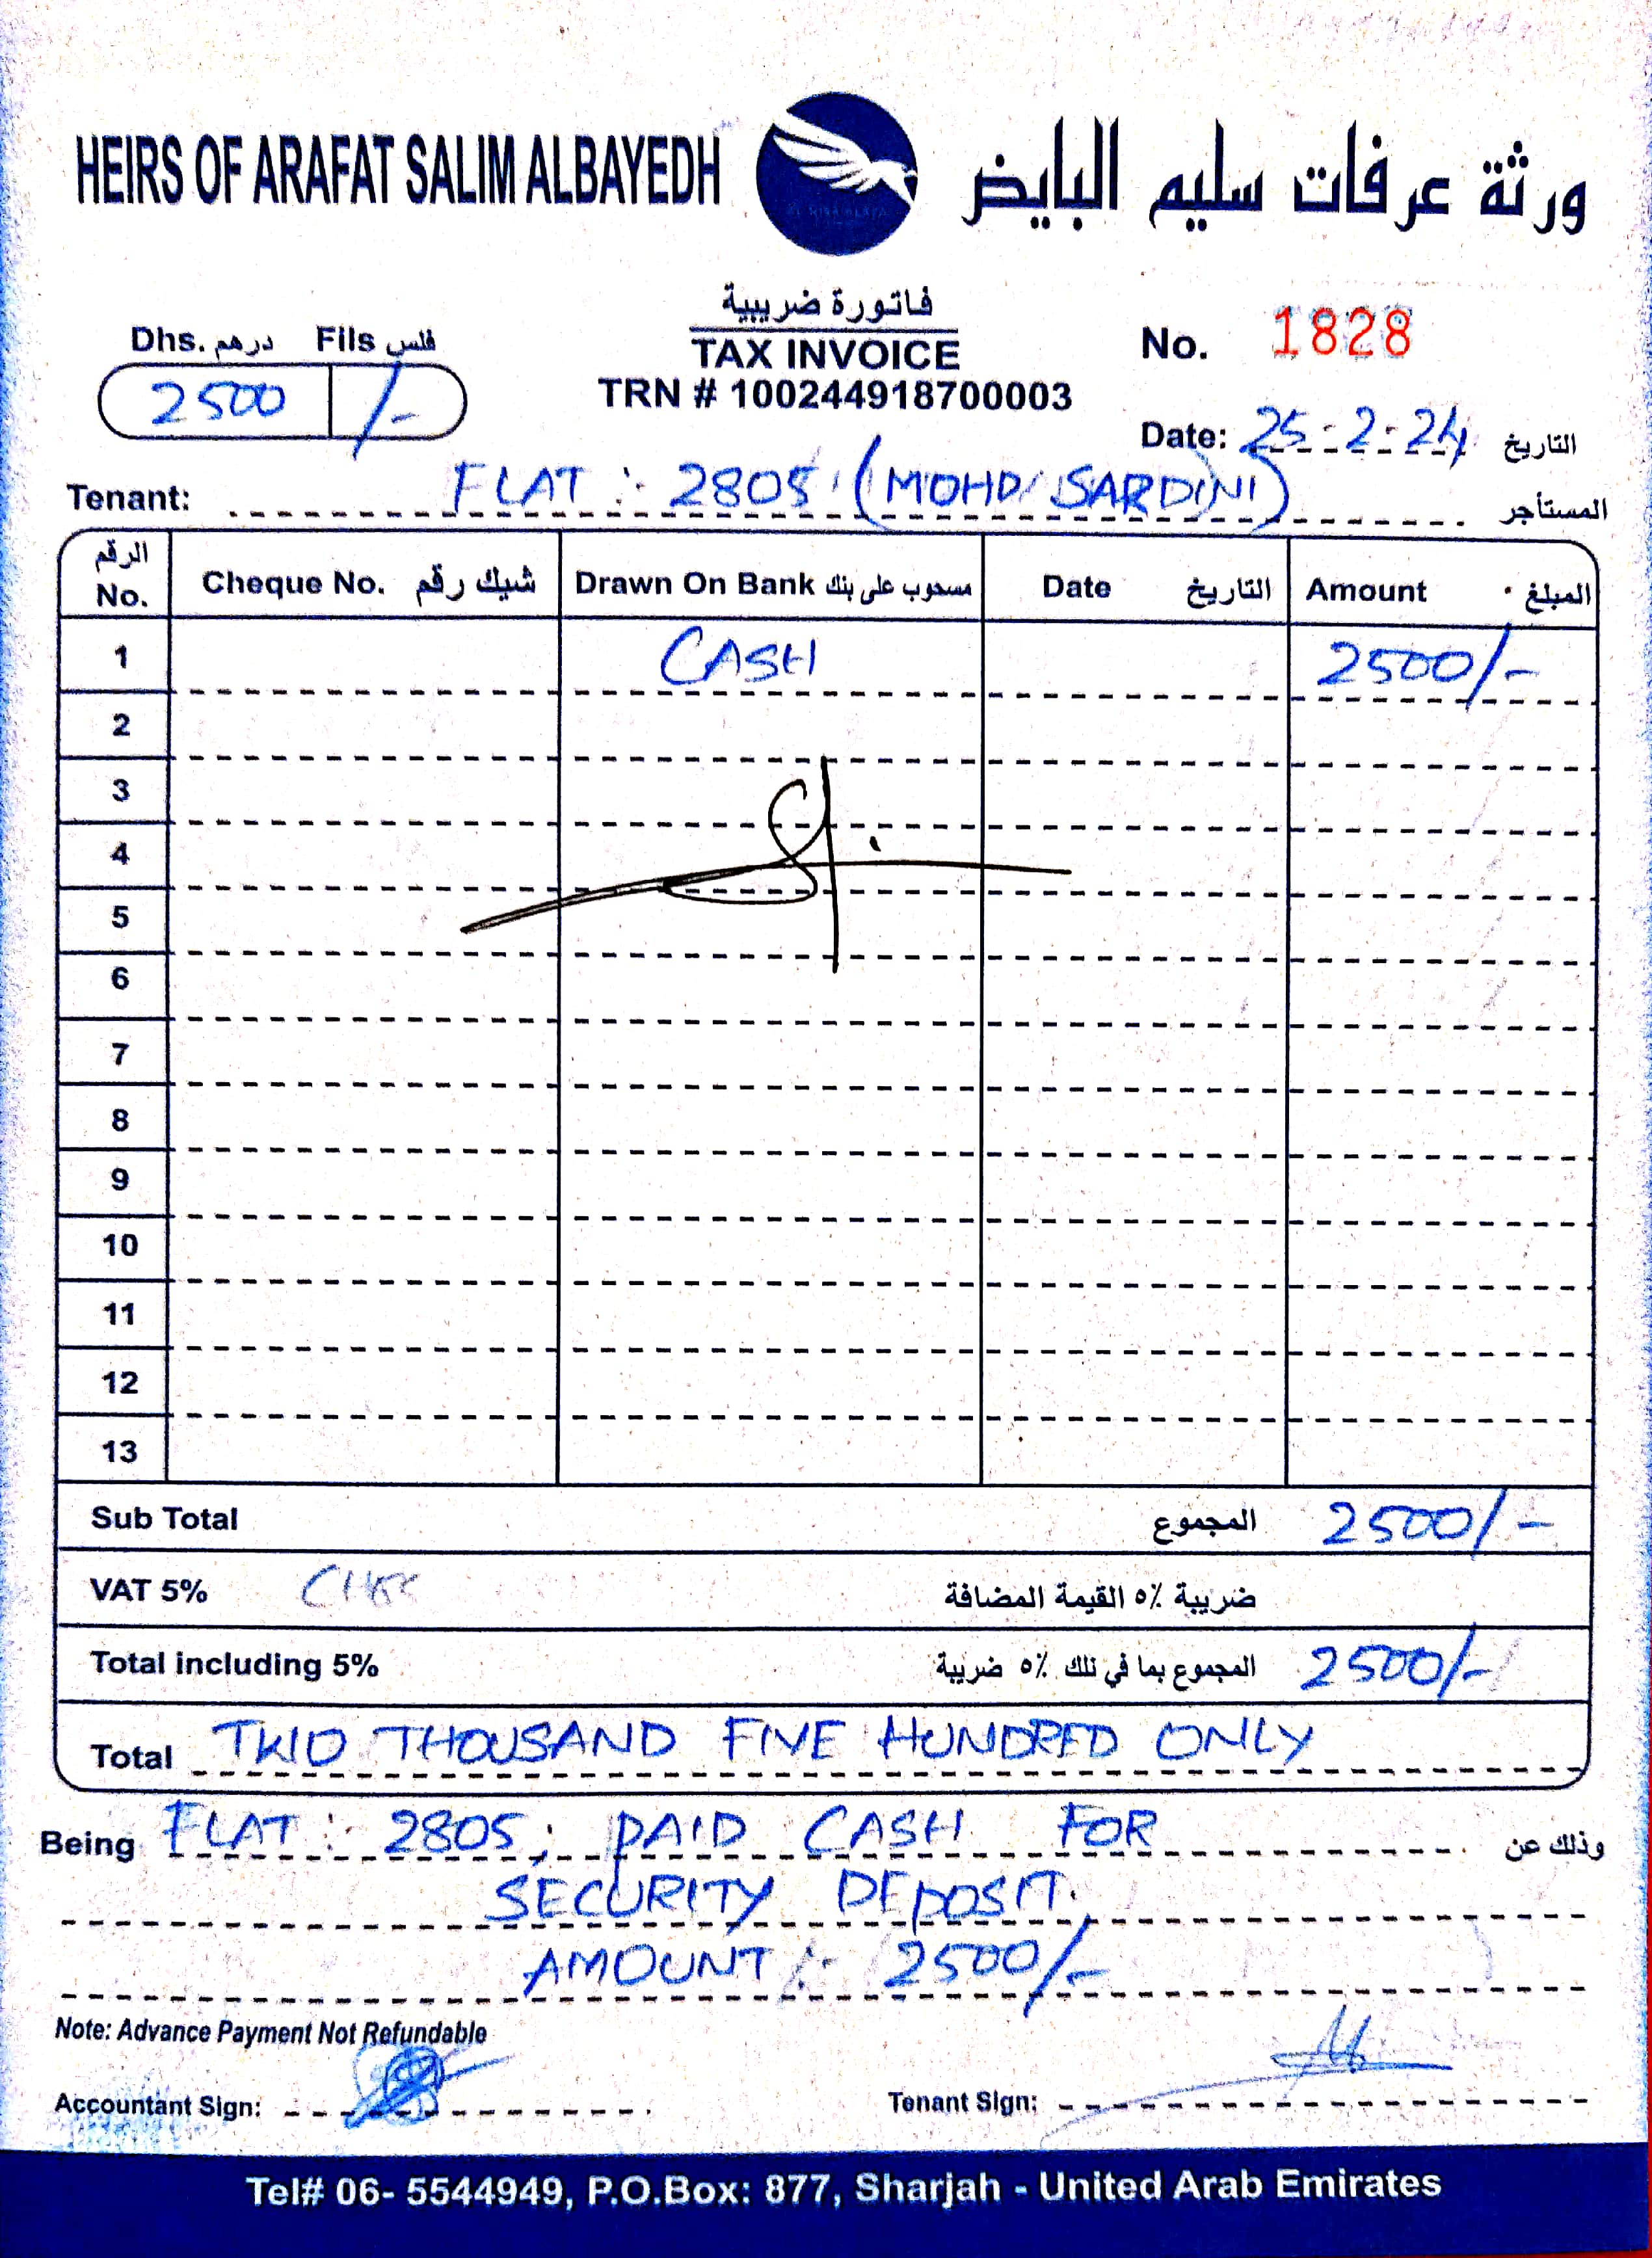 HEIRS OF ARAFAT SALIM ALBAYEDH
ورثة عرفات سليم البايض
فاتورة ضريبية
TAX INVOICE
TRN # 100244918700003
Dhs. درهم Fils فلس
2500 /-
No. 1828
Date: 25-2-24 التاريخ
Tenant: FLAT : 2805 (MOHD SARDINI) المستأجر
الرقم No. Cheque No. شيك رقم Drawn On Bank مسحوب على بنك Date التاريخ Amount المبلغ
1 CASH 2500/-
2
3
4
5
6
7
8
9
10
11
12
13
Sub Total المجموع 2500/-
VAT 5% ضريبة ٥٪ القيمة المضافة
Total including 5% المجموع بما في تلك ٥٪ ضريبة 2500/-
Total TWO THOUSAND FIVE HUNDRED ONLY
Being FLAT : 2805, PAID CASH FOR وذلك عن
SECURITY DEPOSIT.
AMOUNT :- 2500/-
Note: Advance Payment Not Refundable
Accountant Sign:
Tenant Sign:
Tel# 06- 5544949, P.O.Box: 877, Sharjah - United Arab Emirates